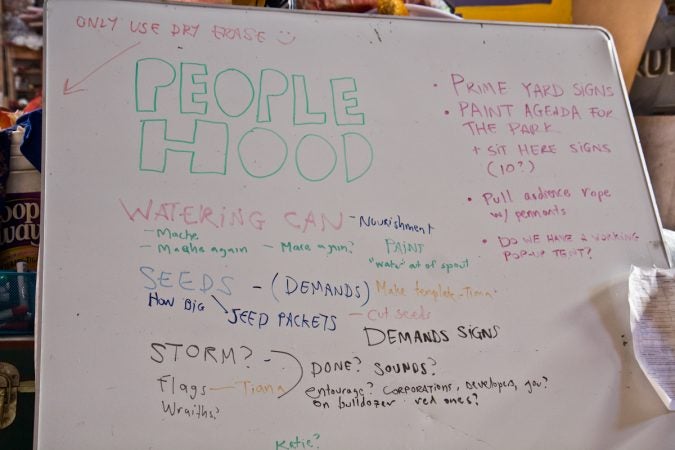 ONLY USE DRY ERASE
PEOPLE
HOOD
• PRIME YARD SIGNS
• PAINT AGENDA FOR
THE PARK
+ SIT HERE SIGNS
(10?)
• Pull audience rope
w/ pennants
• DO WE HAVE A WORKING
POP-UP TENT?
WATERING CAN - Nourishment
- Mache
- Mache again - Mace again? PAINT
"water" out of spout
SEEDS - (DEMANDS) Make template - Tiana
HOW BIG SEED PACKETS - Cut seeds
DEMANDS SIGNS
STORM? - DONE? SOUNDS?
Flags - Tiana entourage? CORPORATIONS, DEVELOPERS,
Wraiths? on bulldozer red ones?
Katie?